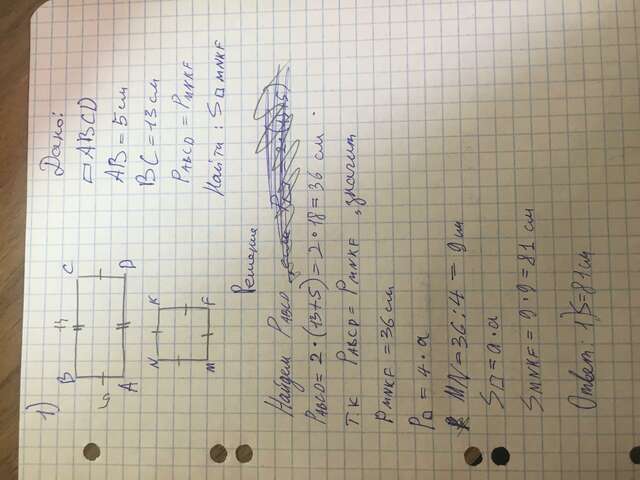 1)
B 13 C
5
A D
N K
M F
Дано:
▭ABCD
AB = 5см
BC = 13см
P ABCD = P MNKF
Найти: S□ MNKF
Решение
Найдем P ABCD
P ABCD = 2·(13+5) = 2·18 = 36 см.
Т.к P ABCD = P MNKF, значит
P MNKF = 36см
P□ = 4·a
MN = 36:4 = 9см
S□ = a·a
S MNKF = 9·9 = 81 см
Ответ: 1) S=81см